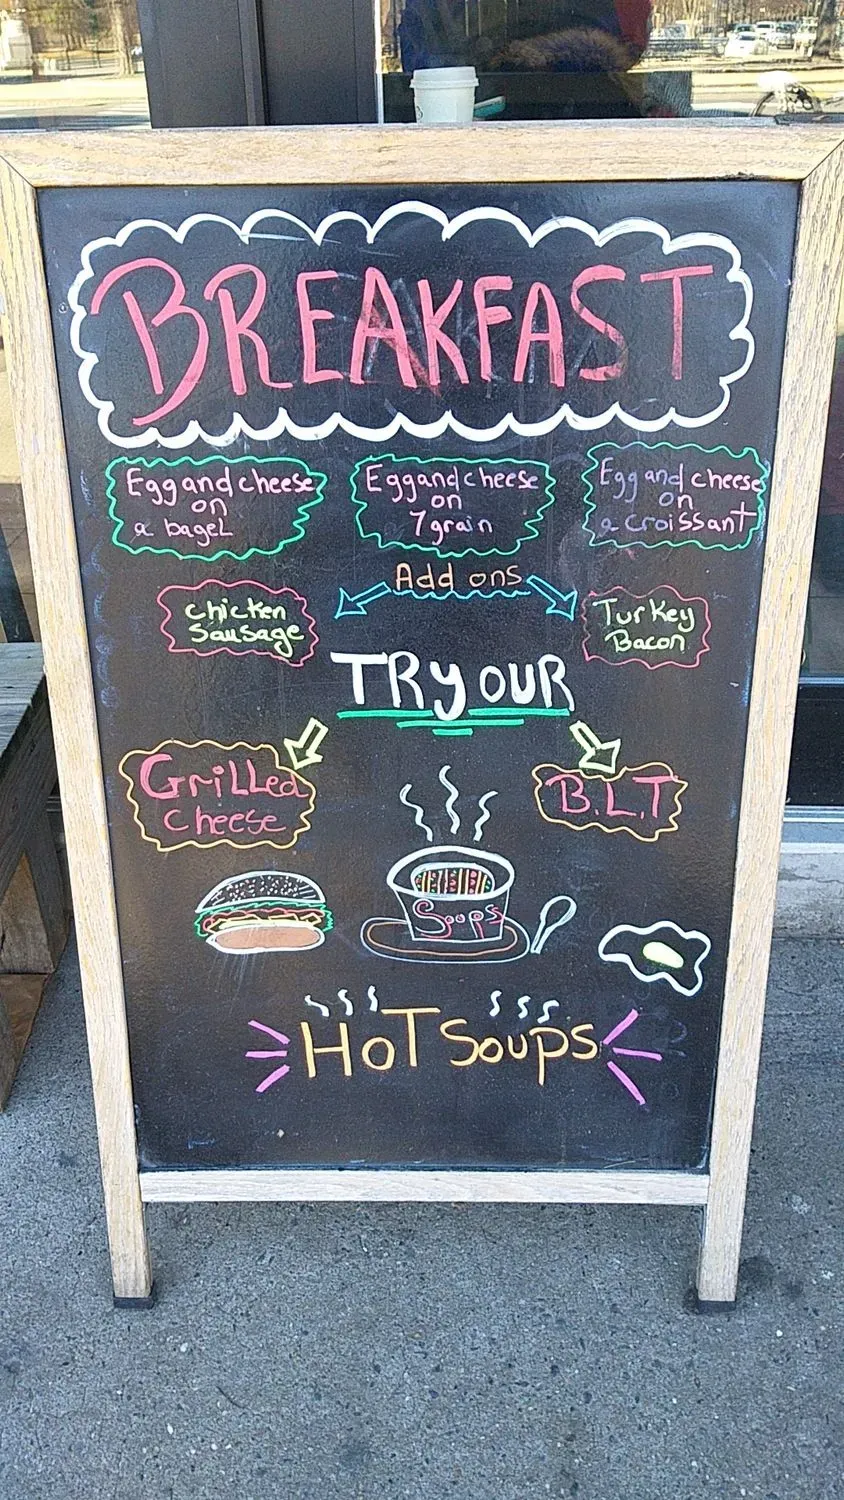 BREAKFAST
Egg and cheese
on
a bagel
Egg and cheese
on
7 grain
Egg and cheese
on
a croissant
Add ons
Chicken
Sausage
Turkey
Bacon
TRY OUR
Grilled
cheese
B.L.T
Soups
HOT Soups